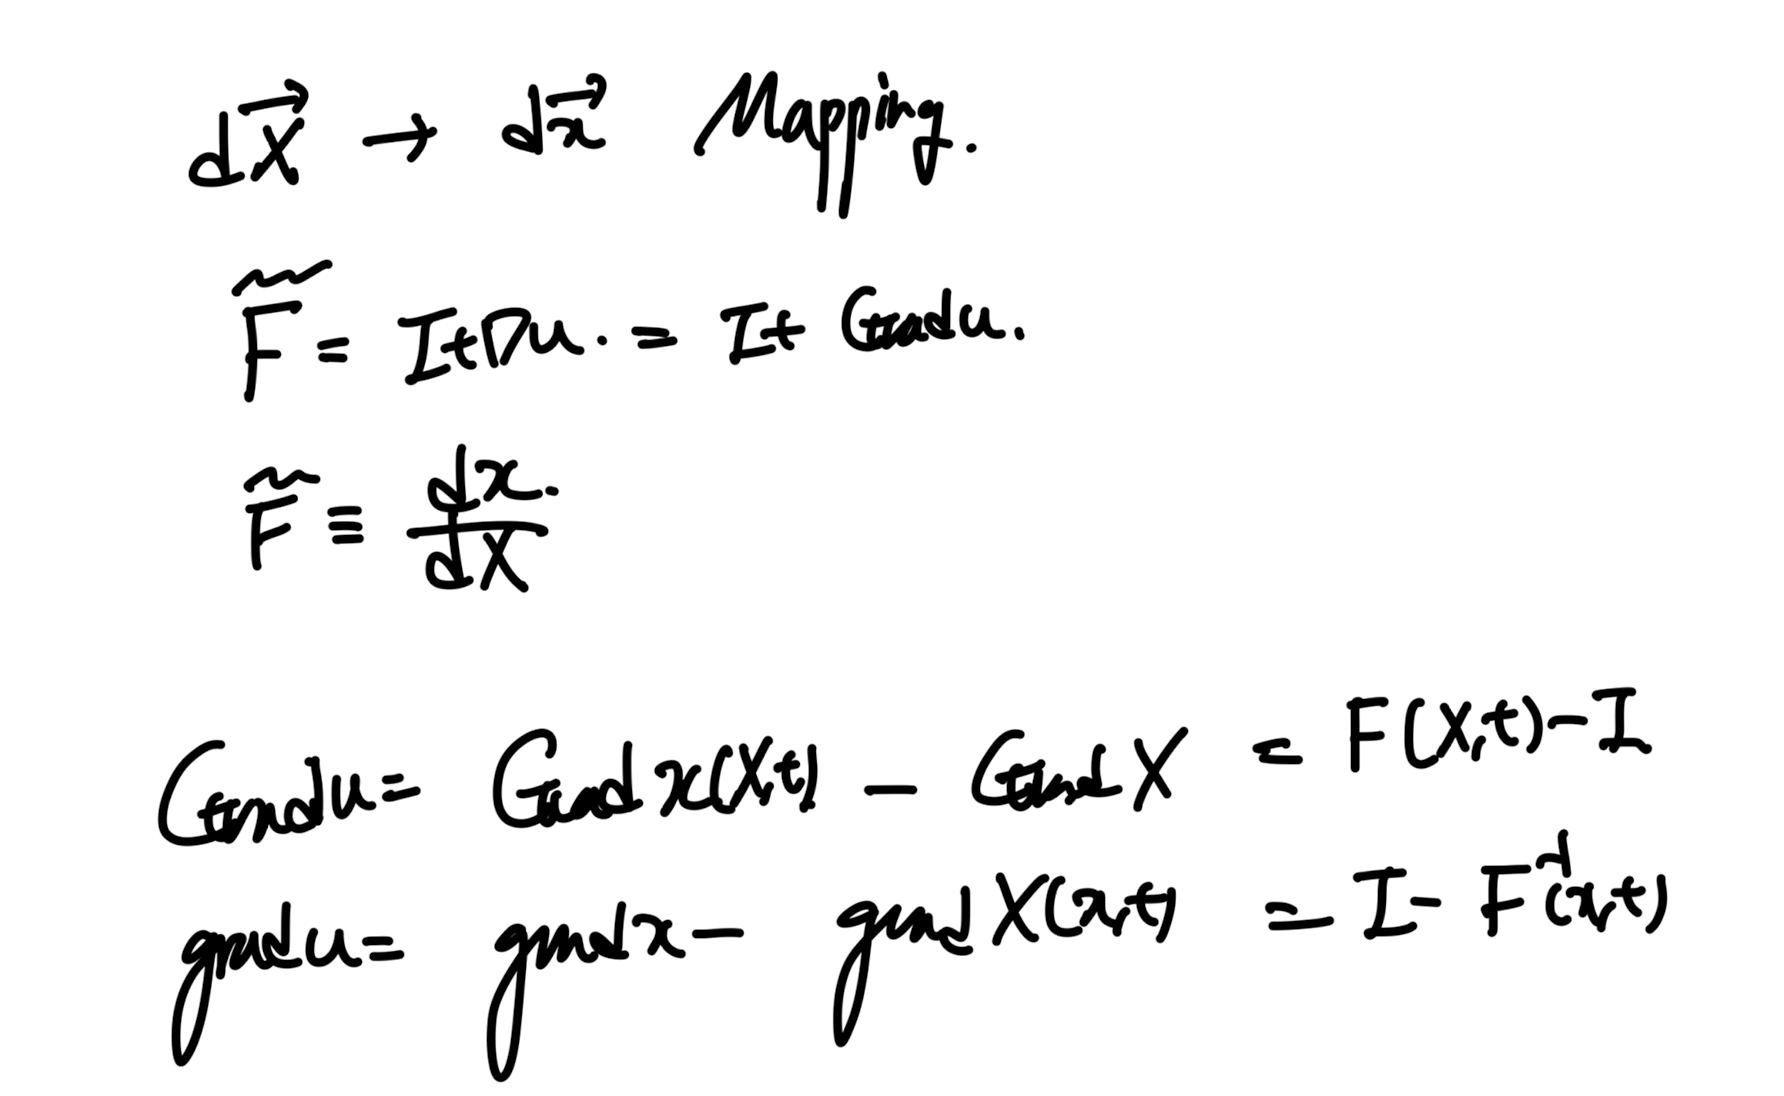 dX⃗ → dx⃗ Mapping.
F̃ = I+∇u. = I+ Gradu.
F̃ ≡ dx. / dX
Gradu= Grad x(X,t) − Grad X = F(X,t)−I
gradu= gradx− grad X(x,t) = I− F⁻¹(x,t)